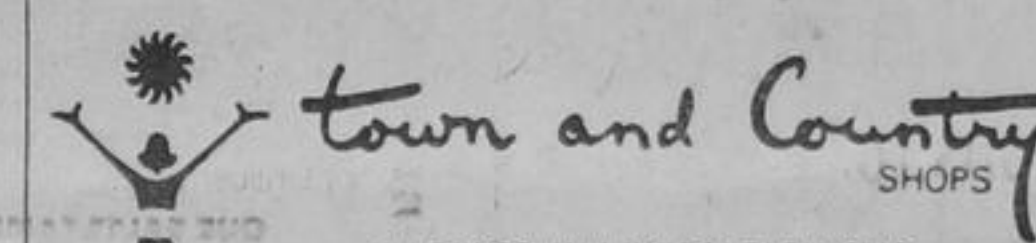 town and Country
SHOPS